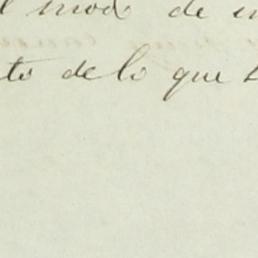 l modo de
to de lo que